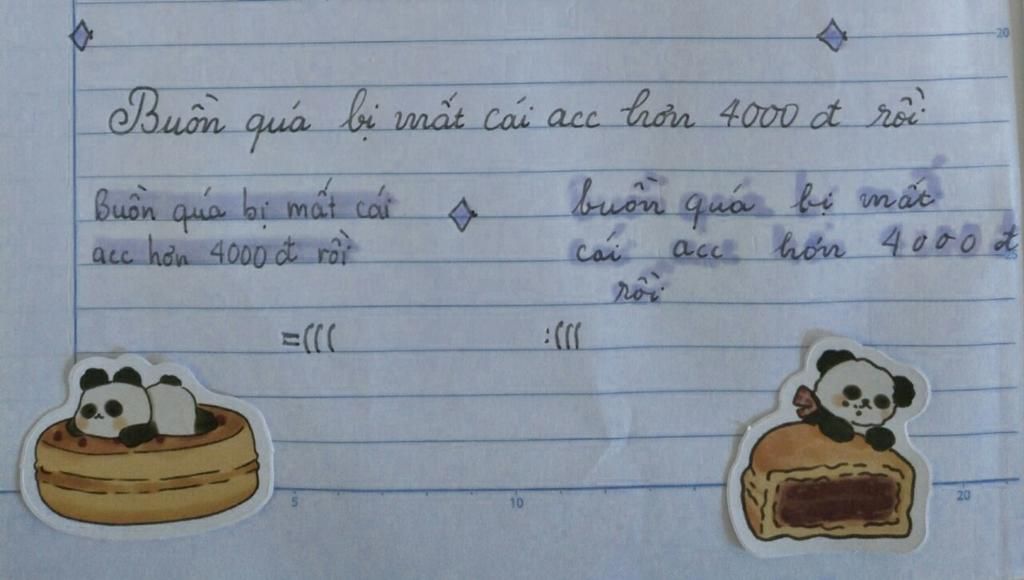 20
Buồn quá bị mất cái acc hơn 4000 đ rồi
Buồn quá bị mất cái
acc hơn 4000 đ rồi
buồn quá bị mất
cái acc hơn 4000 đ
25
rồi
=(((
:(((
5
10
20